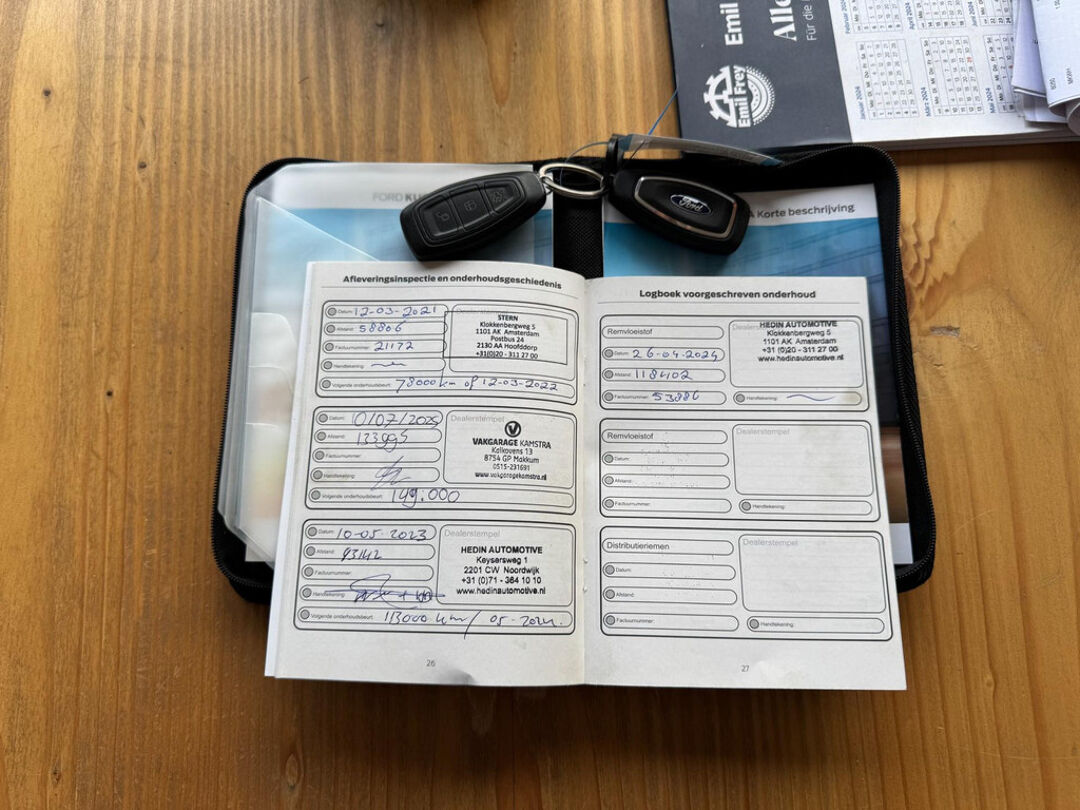 Emil Frey
Emil
Alle
Für die
Januar 2024
Februar 2024
März 2024
April 2024
Mai 2024
Juni 2024
FORD KU
Ford
A Korte beschrijving
Afleveringsinspectie en onderhoudsgeschiedenis
Datum: 12-03-2021
Afstand: 58806
Factuurnummer: 21172
Handtekening:
Volgende onderhoudsbeurt: 78000 km of 12-03-2022
STERN
Klokkenbergweg 5
1101 AK Amsterdam
Postbus 24
2130 AA Hoofddorp
+31(0)20 - 311 27 00
Datum: 10/07/2025
Afstand: 133995
Factuurnummer:
Handtekening:
Volgende onderhoudsbeurt: 149.000
Dealerstempel
VAKGARAGE KAMSTRA
Kalkovens 13
8754 GP Makkum
0515-231691
www.vakgaragekamstra.nl
Datum: 10-05-2023
Afstand: 93142
Factuurnummer:
Handtekening:
Volgende onderhoudsbeurt: 113000 km/ 05-2024.
Dealerstempel
HEDIN AUTOMOTIVE
Keyserswg 1
2201 CW Noordwijk
+31 (0)71 - 364 10 10
www.hedinautomotive.nl
26
Logboek voorgeschreven onderhoud
Remvloeistof
Datum: 26-04-2024
Afstand: 118402
Factuurnummer: 53886
Dealerstempel
HEDIN AUTOMOTIVE
Klokkenbergweg 5
1101 AK Amsterdam
+31 (0)20 - 311 27 00
www.hedinautomotive.nl
Handtekening:
Remvloeistof
Datum:
Afstand:
Factuurnummer:
Dealerstempel
Handtekening:
Distributieriemen
Datum:
Afstand:
Factuurnummer:
Dealerstempel
Handtekening:
27